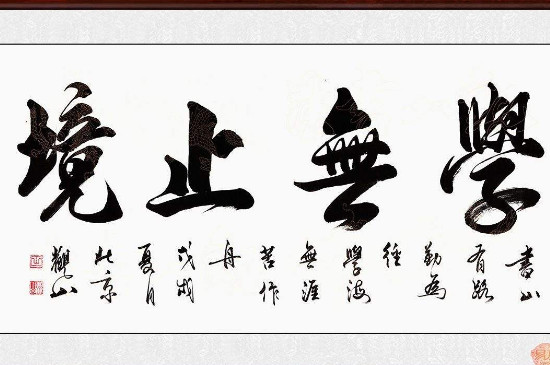 學無止境
書山
有路
勤為
徑
學海
無涯
苦作
舟
戊戌
夏月
北京